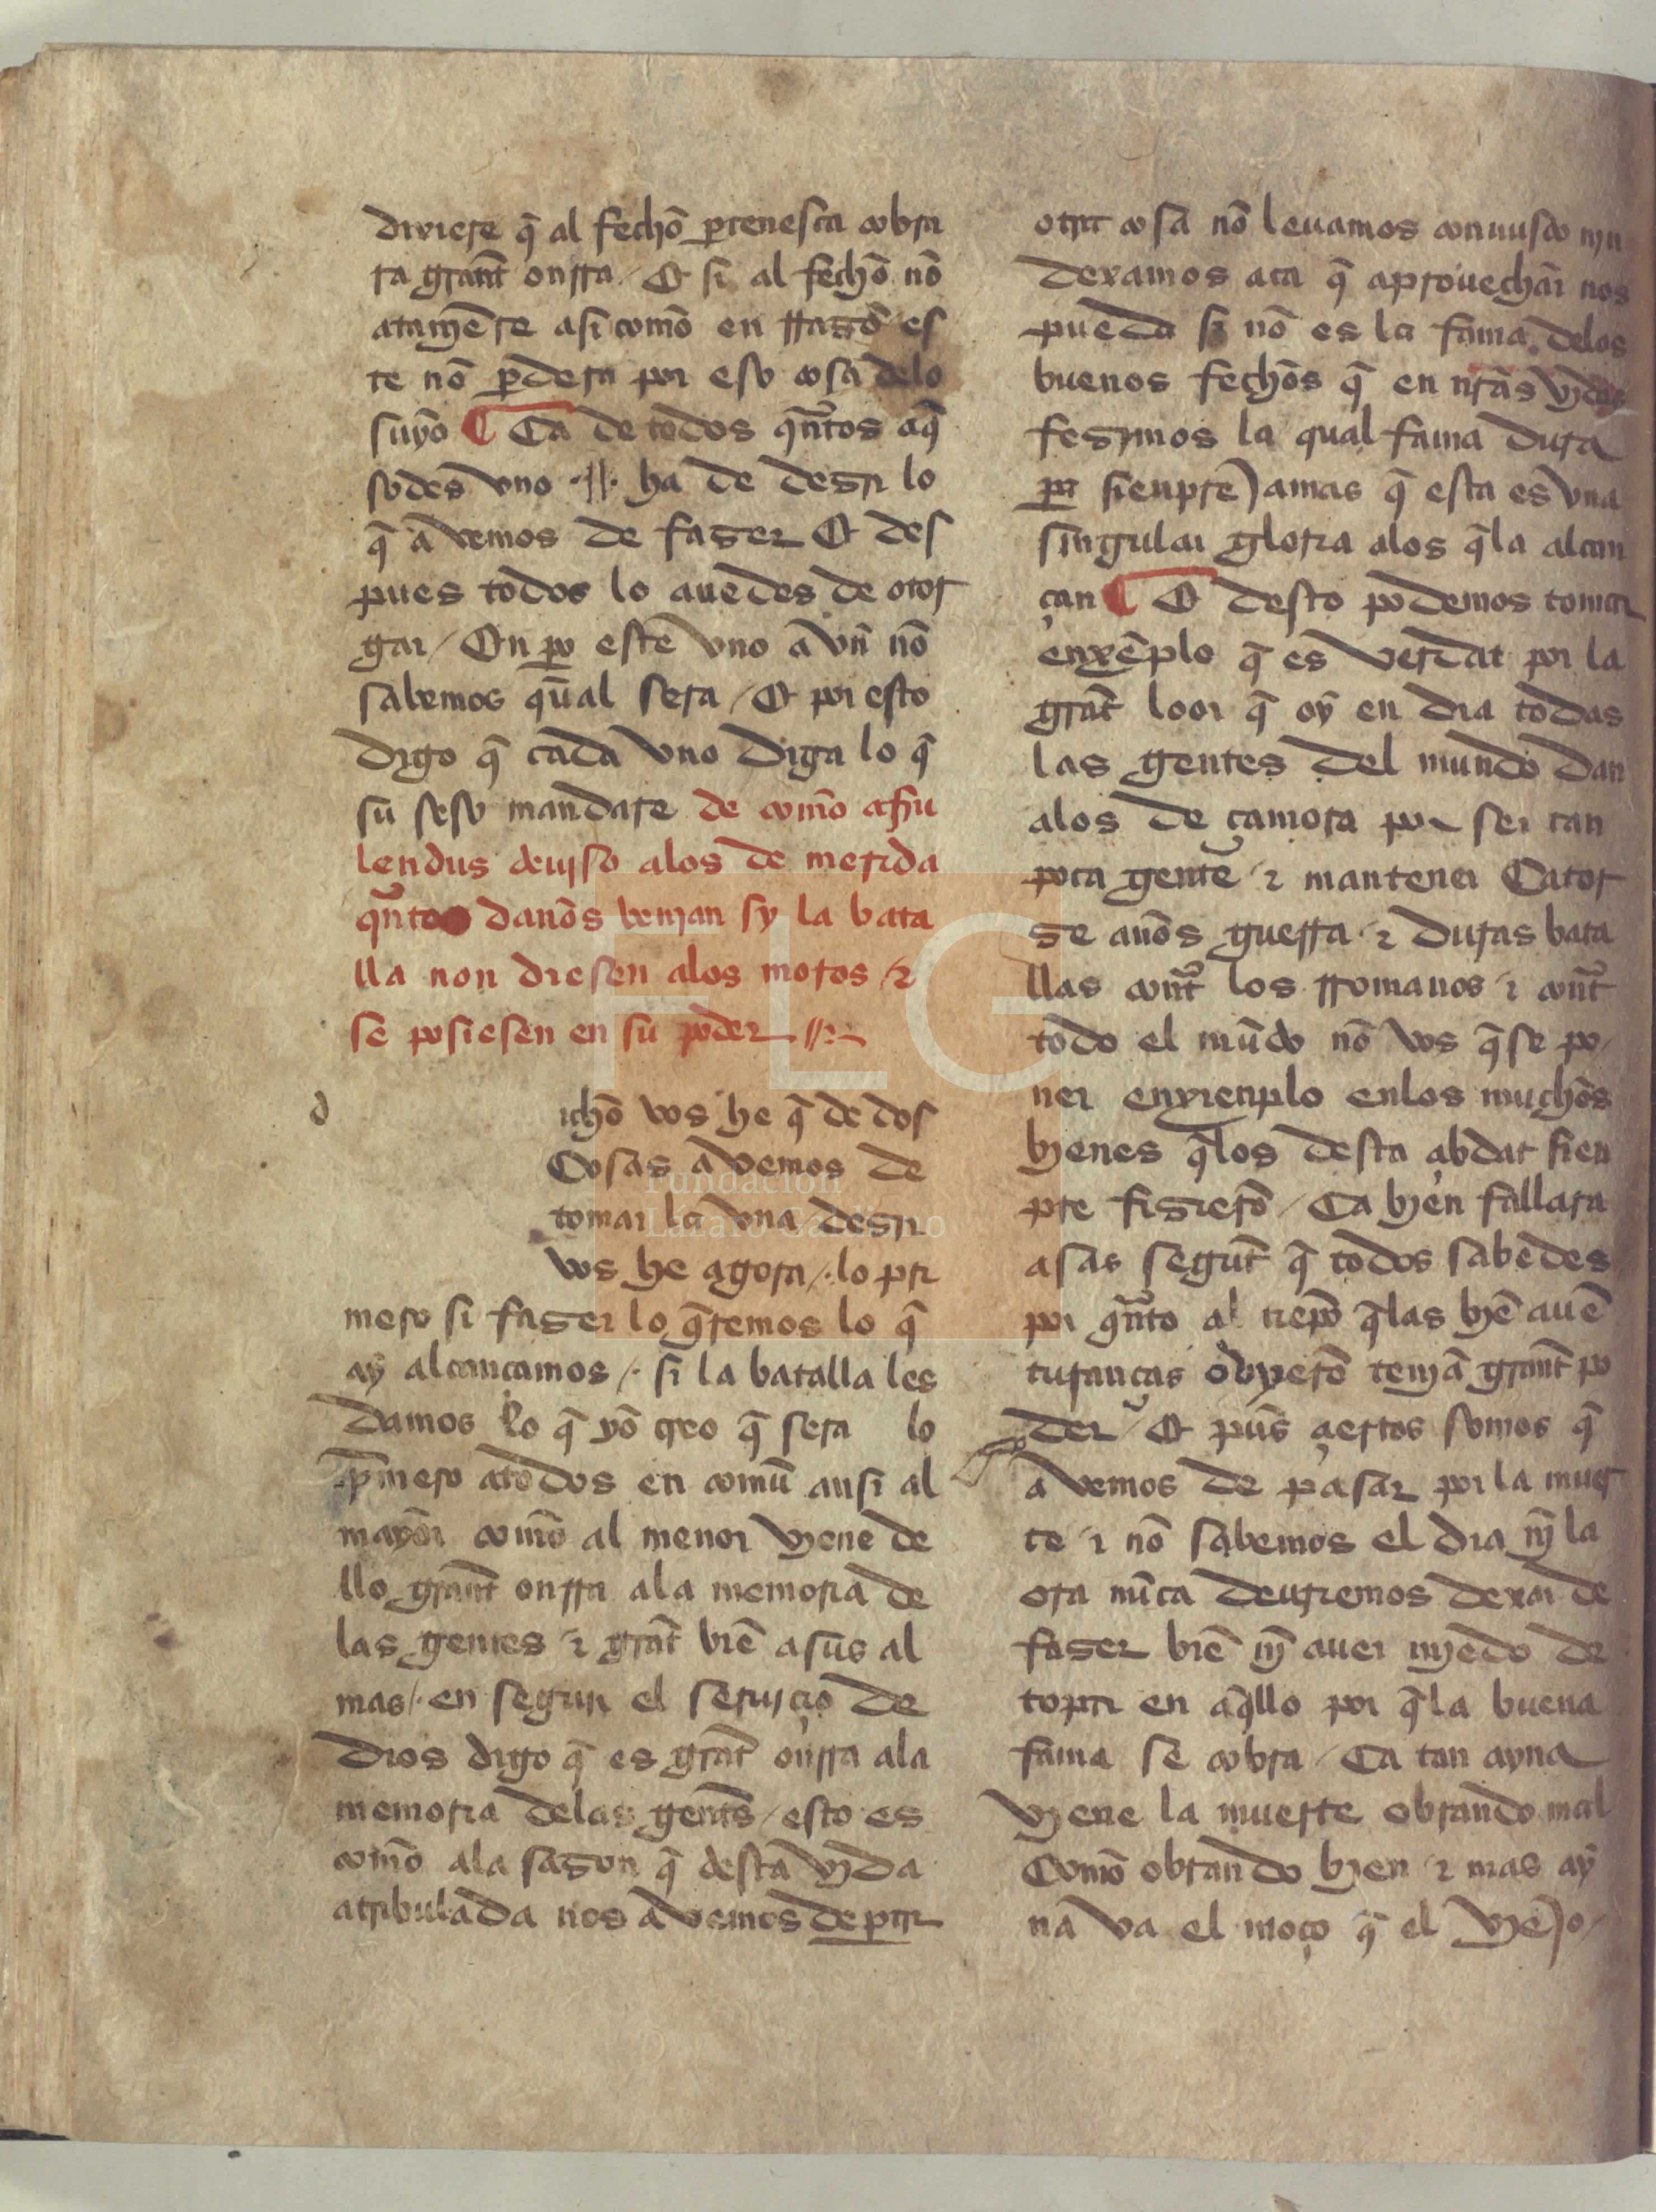 dixiere q̃ al fechõ pertenesca cobra
ra grant̃ onrra / Et si al fechõ nõ
atamẽte asi comõ en rrasõ es
te nõ ꝑdera por eso cosa delo
suyo ¶ Ca de todos quãtos aq̃
sodes vno ha de desir lo
q̃ avemos de faser Et des
pues todos lo auedes de otor
gar / En ꝑo este vno avñ nõ
sabemos qual sera / Et por esto
digo q̃ cada vno diga lo q̃
su seso mandare de comõ afru
lendus deuiso alos de merida
quãtos danõs venian sy la bata
lla non diesen alos moros / ⁊
se posiesen en su poder
d
ichõ vos he q̃ de dos
Cosas avemos de
tomar la vna desir
vos he agora / lo pri
mero si faser lo q̃remos lo q̃
ay alcançamos / si la batalla les
damos lo q̃ yo creo q̃ sera lo
p̃mero atodos en comũ ansi al
mayor comõ al menor viene de
llo grant̃ onrra ala memoria de
las gentes ⁊ grãt biẽ a sus al
mas / en segun el seruiçio de
dios digo q̃ es grãt onrra ala
memoria delas gentẽs / esto es
comõ ala sason q̃ desta vida
atribulada nos avemos de partir
otra cosa nõ leuamos connusco nin
dexamos aca q̃ aprouechar nos
pueda si nõ es la fama delos
buenos fechõs q̃ en nr̃as vidas
fesimos la qual fama dura
por sienpre jamas q̃ esta es vna
singular gloria alos q̃la alcan
çan ¶ E desto podemos tomar
enxẽplo q̃ es verdat por la
grãt loor q̃ oy en dia todas
las gentes del mundo dan
alos de çamora por ser tan
poca gente ⁊ mantener Cator
se anõs guerra ⁊ duras bata
llas cont̃ los rromanos ⁊ cont̃
todo el mũdo nõ vos q̃se po
ner enxienplo enlos muchõs
bienes q̃los desta çibdat sien
pre fisierõ / Ca bien fallara
asas segunt̃ q̃ todos sabedes
por quãto al tiẽpo q̃las biẽ auẽ
turanças ovyerõ teniã grant̃ po
der / Et pues çiertos somos q̃
avemos de pasar por la muer
te ⁊ nõ sabemos el dia nĩ la
ora nũca deuriemos dexar de
faser biẽ nĩ auer miedo de
topar en aq̃llo por q̃ la buena
fama se cobra / Ca tan ayna
viene la muerte obrando mal
Comõ obrando bien ⁊ mas ay
na va el moço q̃ el viejo /
FLG
Fundación
Lázaro Galdiano